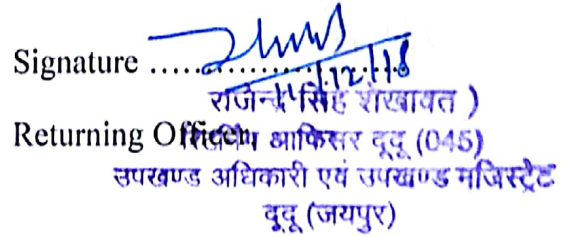 Signature ..................
11/12/18
राजेन्द्र सिंह शेखावत )
Returning Officer, रिटर्निंग आफिसर दूदू (045)
उपखण्ड अधिकारी एवं उपखण्ड मजिस्ट्रेट
दूदू (जयपुर)